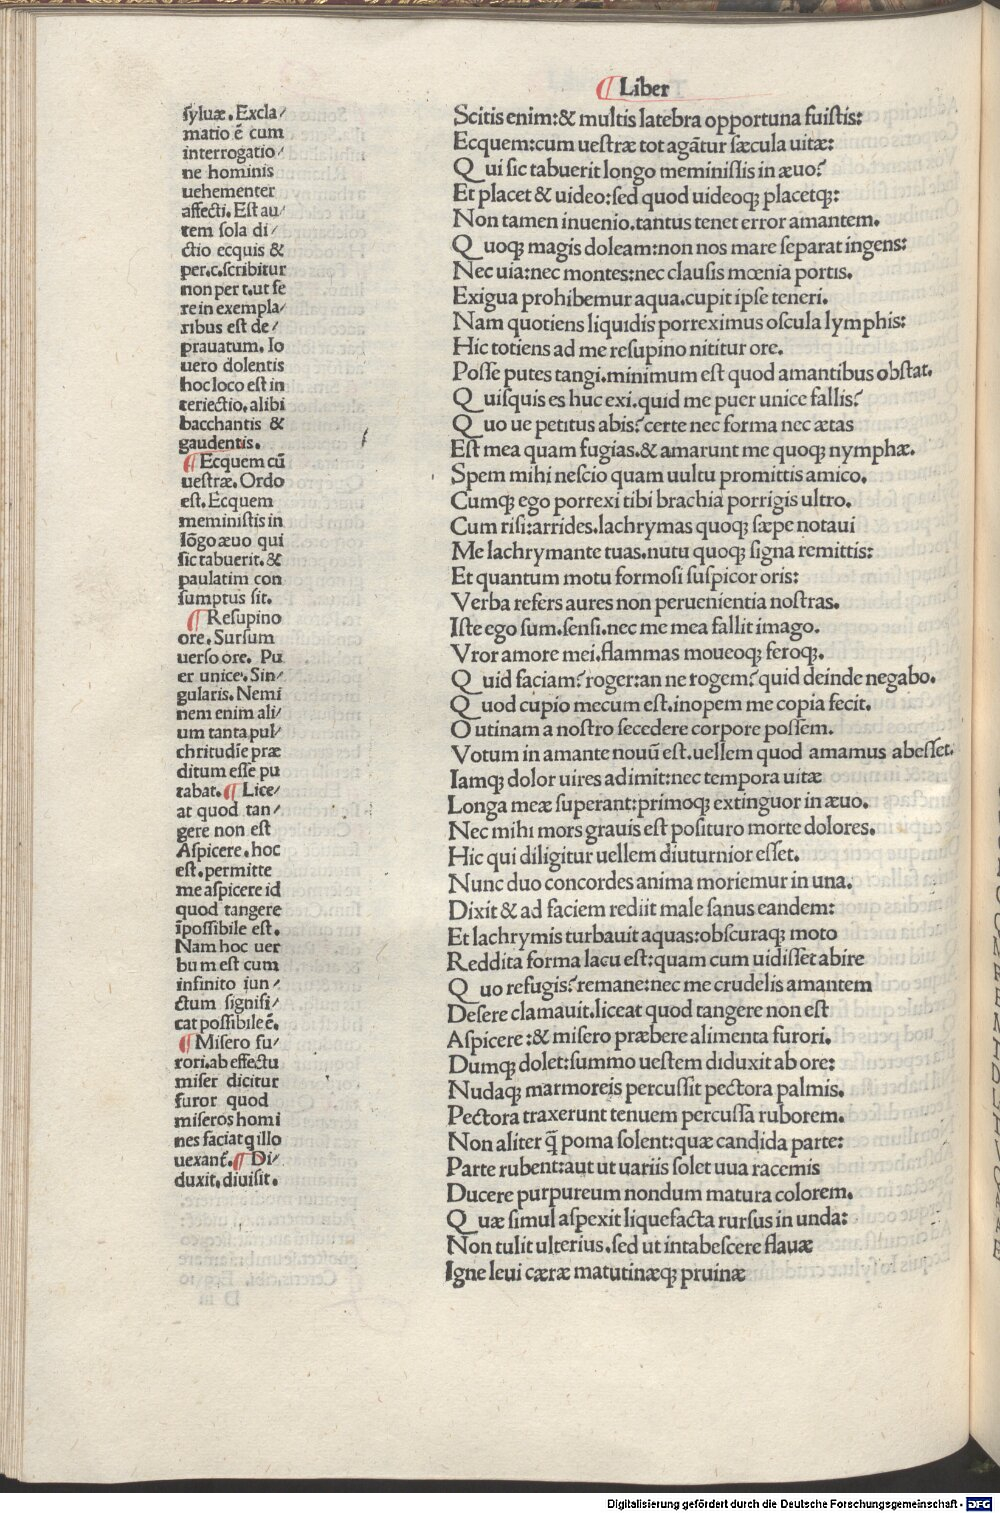 ¶Liber
ſyluæ. Excla⸗
matio ē cum
interrogatio⸗
ne hominis
uehementer
affecti. Eſt au⸗
tem ſola di⸗
ctio ecquis &
per.c.ſcribitur
non per t.ut fe
re in exempla⸗
ribus eſt de⸗
prauatum. Io
uero dolentis
hoc loco eſt in
teriectio, alibi
bacchantis &
gaudentis.
¶Ecquem cū
ueſtræ. Ordo
eſt. Ecquem
meminiſtis in
lōgo æuo qui
ſic tabuerit. &
paulatim con
ſumptus ſit.
¶Reſupino
ore. Surſum
uerſo ore. Pu
er unice. Sin⸗
gularis. Nemi
nem enim ali⸗
um tanta pul⸗
chritudīe præ
ditum eſſe pu
tabat. ¶Lice⸗
at quod tan⸗
gere non eſt
Aſpicere. hoc
eſt. permitte
me aſpicere id
quod tangere
īpoſſibile eſt.
Nam hoc uer
bum eſt cum
infinito iun⸗
ctum ſignifi⸗
cat poſſibile ē.
¶Miſero fu⸗
rori. ab effectu
miſer dicitur
furor quod
miſeros homi
nes faciat q illo
uexant᷑. ¶Di⸗
duxit. diuiſit.
Scitis enim:& multis latebra opportuna fuiſtis:
Ecquem:cum ueſtræ tot agātur ſæcula uitæ:
Qui ſic tabuerit longo meminiſtis in æuo?
Et placet & uideo:ſed quod uideoqꝫ placetqꝫ:
Non tamen inuenio.tantus tenet error amantem.
Quoqꝫ magis doleam:non nos mare ſeparat ingens:
Nec uia:nec montes:nec clauſis mœnia portis.
Exigua prohibemur aqua.cupit ipſe teneri.
Nam quotiens liquidis porreximus oſcula lymphis:
Hic totiens ad me reſupino nititur ore.
Poſſe putes tangi.minimum eſt quod amantibus obſtat.
Quiſquis es huc exi.quid me puer unice fallis?
Quo ue petitus abis?certe nec forma nec ætas
Eſt mea quam fugias.& amarunt me quoqꝫ nymphæ.
Spem mihi neſcio quam uultu promittis amico.
Cumqꝫ ego porrexi tibi brachia porrigis ultro.
Cum riſi:arrides.lachrymas quoqꝫ ſæpe notaui
Me lachrymante tuas.nutu quoqꝫ ſigna remittis:
Et quantum motu formoſi ſuſpicor oris:
Verba refers aures non peruenientia noſtras.
Iſte ego ſum.ſenſi.nec me mea fallit imago.
Vror amore mei.flammas moueoqꝫ feroqꝫ.
Quid faciam?roger:an ne rogem?quid deinde negabo.
Quod cupio mecum eſt.inopem me copia fecit.
O utinam a noſtro ſecedere corpore poſſem.
Votum in amante nouū eſt.uellem quod amamus abeſſet.
Iamqꝫ dolor uires adimit:nec tempora uitæ
Longa meæ ſuperant:primoqꝫ extinguor in æuo.
Nec mihi mors grauis eſt poſituro morte dolores.
Hic qui diligitur uellem diuturnior eſſet.
Nunc duo concordes anima moriemur in una.
Dixit & ad faciem rediit male ſanus eandem:
Et lachrymis turbauit aquas:obſcuraqꝫ moto
Reddita forma lacu eſt:quam cum uidiſſet abire
Quo refugis?remane:nec me crudelis amantem
Deſere clamauit.liceat quod tangere non eſt
Aſpicere:& miſero præbere alimenta furori.
Dumqꝫ dolet:ſummo ueſtem diduxit ab ore:
Nudaqꝫ marmoreis percuſſit pectora palmis.
Pectora traxerunt tenuem percuſſa ruborem.
Non aliter q̄ poma ſolent:quæ candida parte:
Parte rubent:aut ut uariis ſolet uua racemis
Ducere purpureum nondum matura colorem.
Quæ ſimul aſpexit liquefacta rurſus in unda:
Non tulit ulterius.ſed ut intabeſcere flauæ
Igne leui cæræ matutinæqꝫ pruinæ
Digitalisierung gefördert durch die Deutsche Forschungsgemeinschaft - DFG